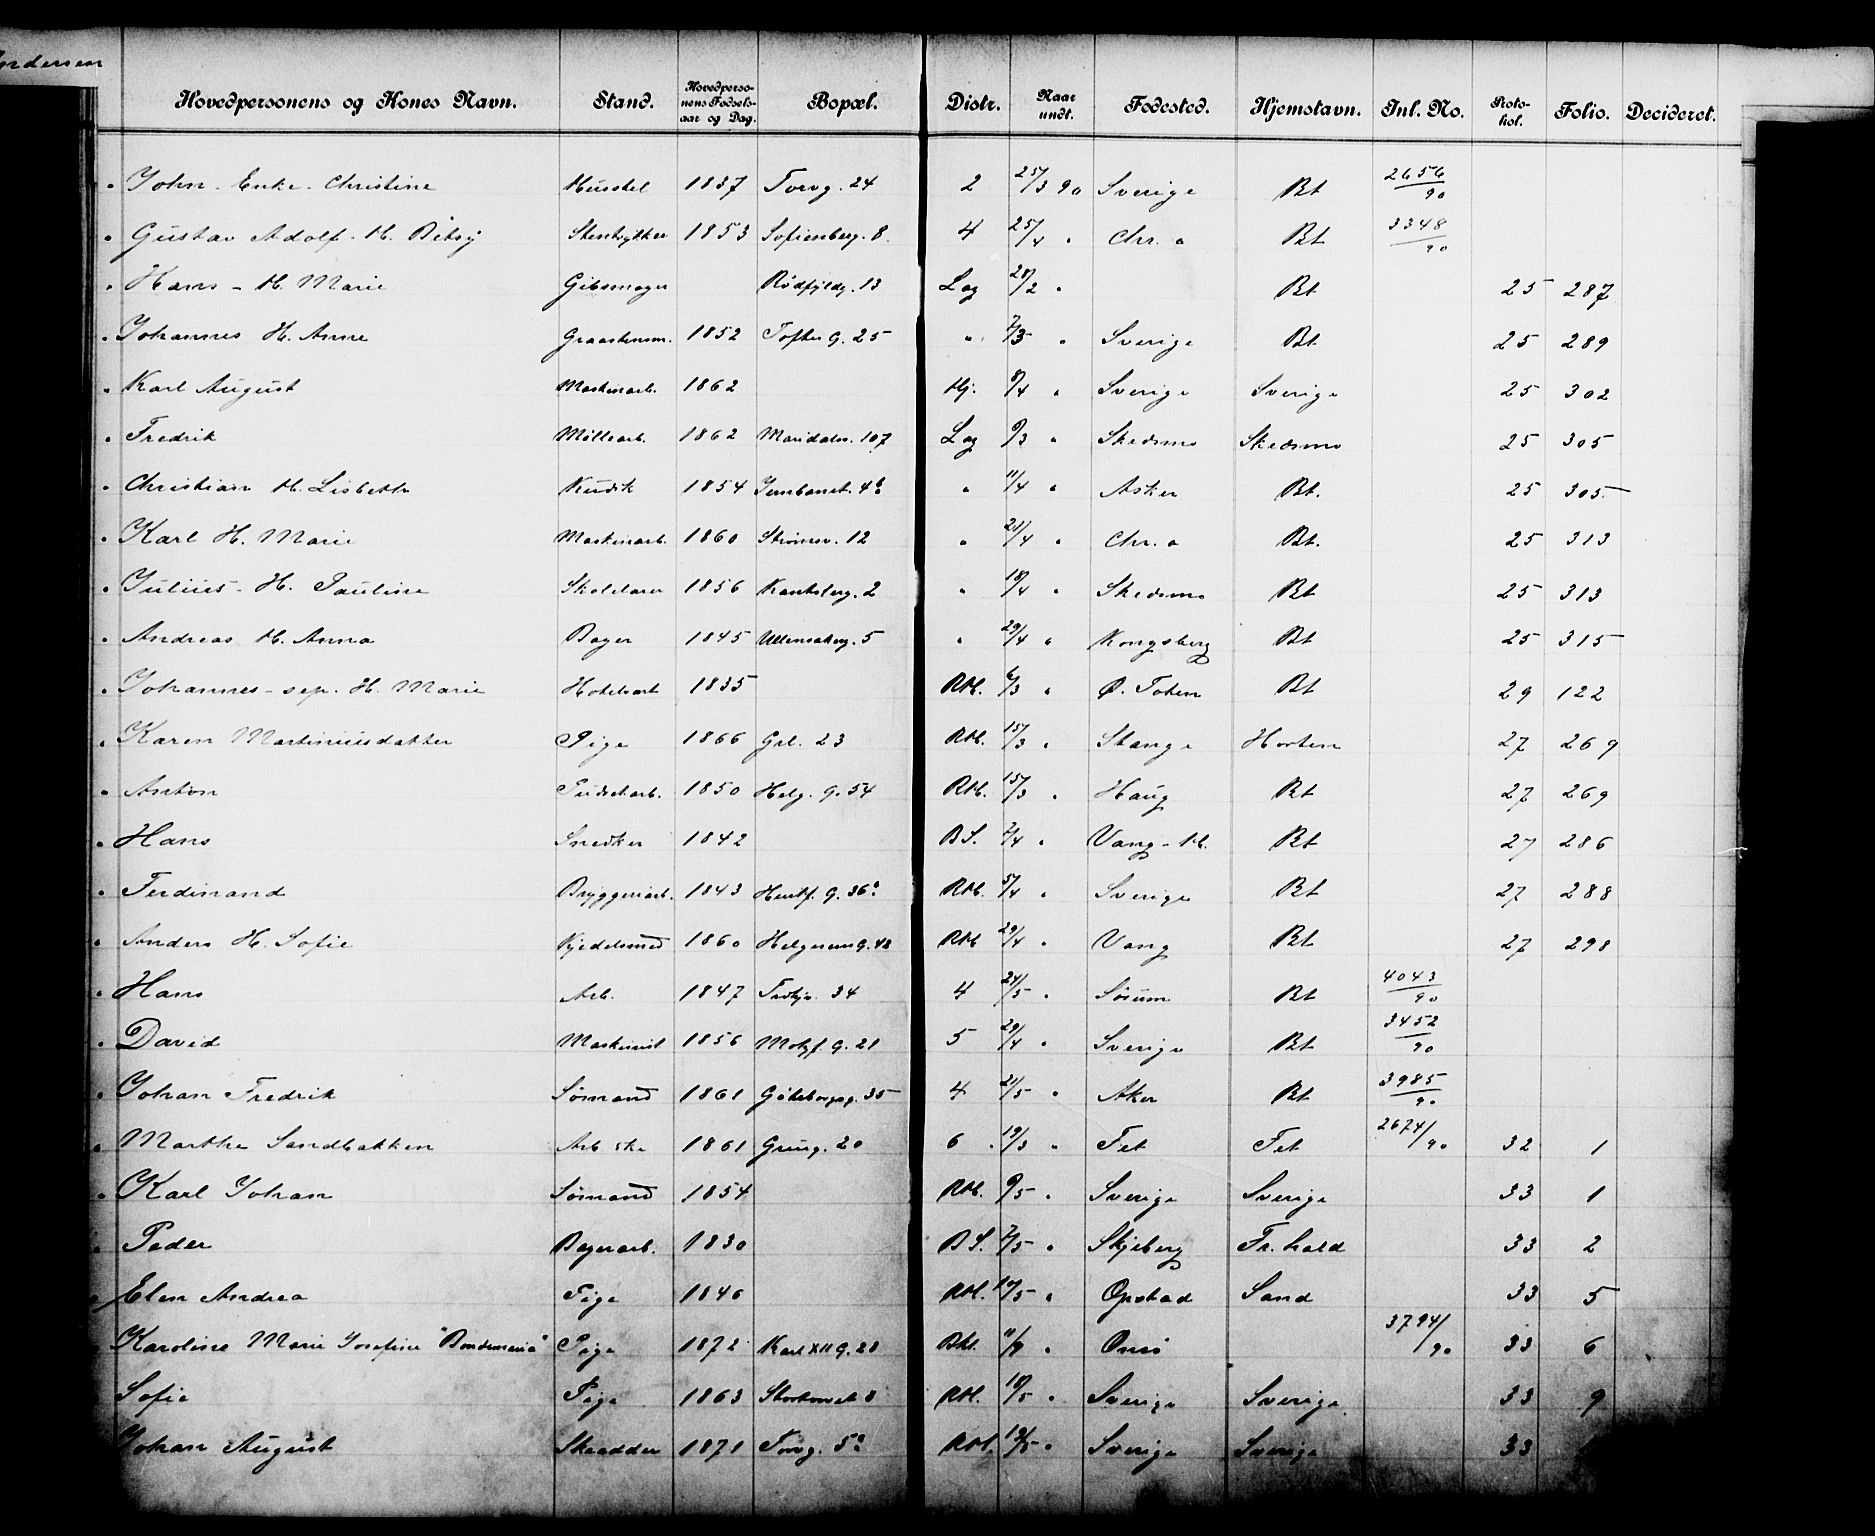 Andersen
Hovedpersonens og Kones Navn. Stand. Hovedpersonens Fødselsaar og Dag. Bopæl. Distr. Naar undt. Fødested. Hjemstavn. Inl. No. Protokol. Folio. Decideret.
John. Enke. Christine 1837 Torvg. 24 2 25/3 90 Sverige Bt 2656/90
Gustav Adolf. H. Betsy Stenhugger 1853 Sofienberg. 8. 4 25/4 " Chr. a Bt 3348/90
Hans - H. Marie Gibsmager Rødfyldg. 13 Lag 28/2 " Bt 25 287
Johannes H. Anne Graastensm. 1852 Tofteg. 25 " 7/3 " Sverige Bt 25 289
Karl August Maskinarb. 1862 Hj. 8/4 " Sverige Sverige 25 302
Fredrik Møllearb. 1862 Maridalsv. 107 Lag 9/3 " Skedsmo Skedsmo 25 305
Christian H. Lisbeth Kudsk 1854 " 11/4 " Asker Bt. 25 305
Karl H. Marie Maskinarb. 1860 Strømsv. 12 " 21/4 " Chr. a Bt. 25 313
Julius - H. Pauline 1856 2 " 18/4 " Skedsmo Bt 25 313
Andreas H. Anna Bager 1845 Ullensakerg. 5 " 29/4 " Kongsberg Bt 25 315
Johannes - sep. H. Marie 1835 RH. 6/3 " Ø. Toten Bt 29 122
Karen Martiniusdatter Pige 1866 Grl. 23 RH. 15/3 " Stange Horten 27 269
Anton 1850 Helg. G. 54 RH. 15/3 " Haug Bt 27 269
Hans Snedker 1842 BS. 7/4 " Vang - H. Bt 27 286
Ferdinand Bryggeriarb. 1843 RH. 5/4 " Sverige Bt 27 288
Anders H. Sofie Kjedelsmed 1860 Helgesens G. 42 RH 29/4 " Vang Bt 27 298
Hans Arb. 1847 34 4 24/5 " Sørum Bt 4043/90
David Maskinist 1856 Motzf. G. 21 5 29/4 " Sverige Bt 3452/90
Johan Fredrik Sømand 1861 Gøteborgsg. 35 4 21/5 " Aker Bt 3985/90
Marthe Sandbakken Arb ske 1861 Grüng. 20 6 19/3 " Fet Fet 2674/90 32 1
Karl Johan Sømand 1854 RH. 9/5 " Sverige Sverige 33 1
Peder Bagerarb. 1830 BS. 7/5 " Skjeberg Fr.hald 33 2
Elen Andrea Pige 1846 RH. /5 " Opstad Sand 33 5
Karoline Marie Josefine "Bondemaria" Pige 1872 Karl XII G. 28 11/9 " Onsø 3794/90 33 6
Sofie Pige 1863 Stortorvet 8 RH. 18/5 " Sverige Sverige 33 9
Johan August Skrædder 1871 Torvg. 5 RH. /5 " Sverige Sverige 33